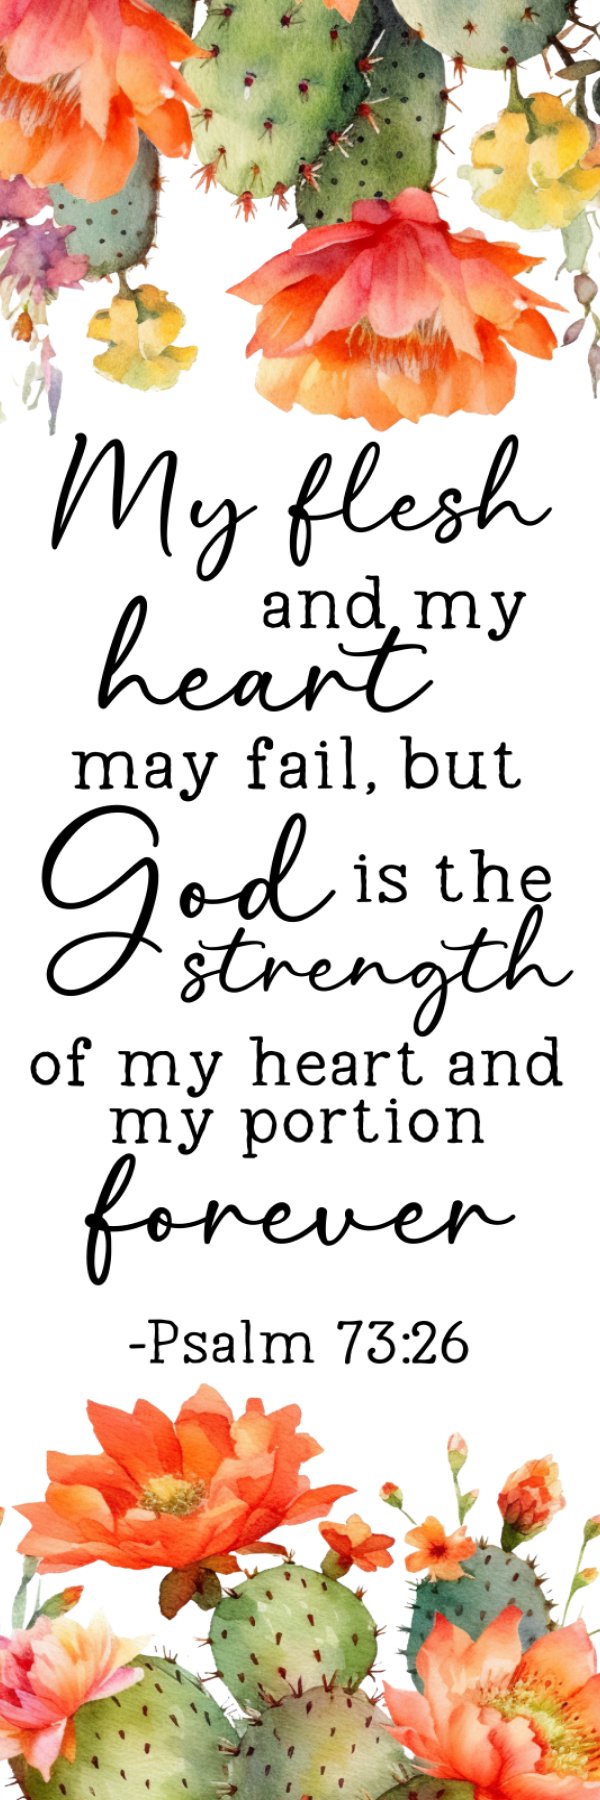 My flesh
and my
heart
may fail, but
God is the
strength
of my heart and
my portion
forever
-Psalm 73:26